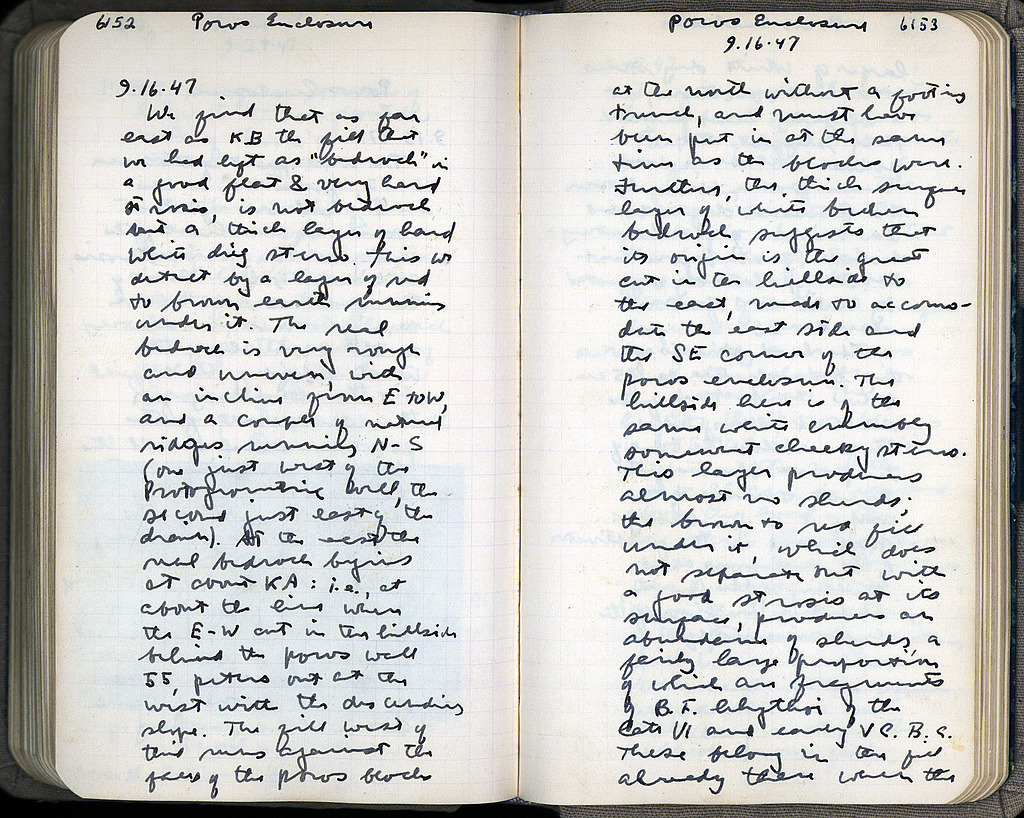 6152 Poros Enclosure
9.16.47
We find that as far
east as KB the fill that
we had left as "bedrock" in
a good flat & very hard
strosis, is not bedrock
but a thick layer of hard
white dug stereo. This we
detect by a layer of red
to brown earth running
under it. The real
bedrock is very rough
and uneven, with
an incline from E to W,
and a couple of natural
ridges running N-S
(one just west of the
Protogeometric Well, the
second just east of the
drain). At the east the
real bedrock begins
at about KA: i.e., at
about the line where
the E-W cut in the hillside
behind the poros wall
55, peters out at the
west with the descending
slope. The fill west of
this runs against the
face of the poros blocks
Poros Enclosure 6153
9.16.47
at the north without a footing
trench, and must have
been put in at the same
time as the blocks were.
Further, the thick surface
layer of white broken
bedrock suggests that
its origin is the great
cut in the hillside to
the east, made to accomo-
date the east side and
the SE corner of the
poros enclosure. The
hillside here is of the
same white crumbly
somewhat chalky stereo.
This layer produces
almost no sherds;
the brown to red fill
under it, which does
not separate out with
a good strosis at its
surface, produces an
abundance of sherds, a
fairly large proportion
of which are fragments
of B.F. lekythoi of the
late VI and early V C. B.C.
These belong in the fill
already there when the